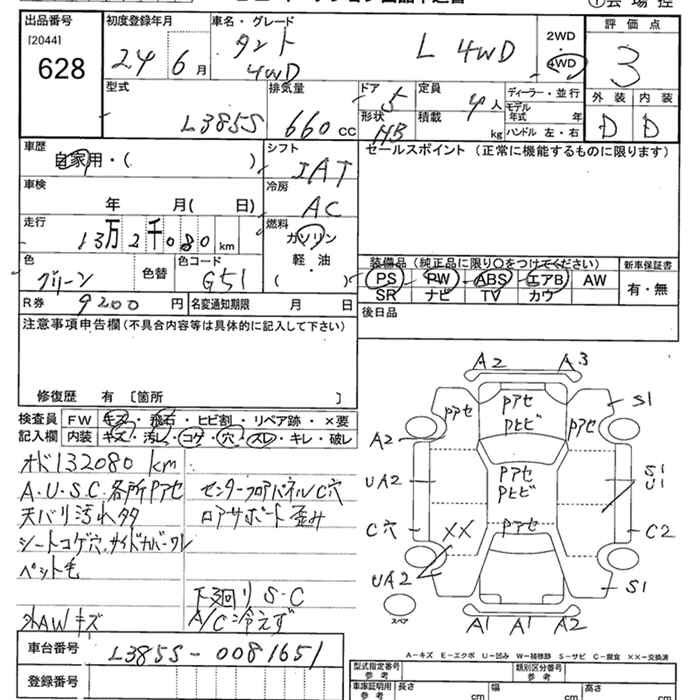 出品番号
[2044]
628
初度登録年月
24 6 月
車名・グレード
タント L 4WD
4WD
2WD
・
4WD
評価点
3
外装 内装
D D
型式
L385S
排気量
660 cc
ドア 5
形状 HB
定員
4 人
積載
kg
ディーラー・並行
モデル年式 年
ハンドル 左・右
車歴
自家用・( )
シフト
IAT
セールスポイント (正常に機能するものに限ります)
車検
年 月( 日)
冷房
AC
走行
13万2千080 km
燃料
ガソリン
軽・油
( )
色
グリーン
色替
色コード
G51
装備品(純正品に限り○をつけてください)
PS PW ABS エアB AW
SR ナビ TV カワ
新車保証書
有・無
R券 9200 円
名変通知期限 月 日
後日品
注意事項申告欄(不具合内容等は具体的に記入して下さい)
修復歴 有 [箇所 ]
検査員
記入欄
FW キズ・飛石・ヒビ割・リペア跡・×要
内装 キズ・汚レ・コゲ・穴・スレ・キレ・破レ
オド132080 km
A・U・S・C 各所Pアセ
センターフロアパネルC穴
天バリ汚れ多
ロアサポート歪み
シートコゲ穴、サイドカバーワレ
ペット毛
下廻りS・C
外AWキズ
A/C冷えず
A2 A3
Pアセ
Pアセ
Pヒビ
Pアセ
S1
A2
UA2
Pアセ
Pヒビ
S1
U1
C穴
XX
Pアセ
C2
UA2
S1
スペア
A1 A1 A2
A-キズ E-エクボ U-凹み W-補修跡 S-サビ C-腐食 ××-交換済
車台番号
L385S-0081651
登録番号
型式指定番号
参考
類別区分番号
参考
車庫証明用
参考
長さ
cm
幅
cm
高さ
cm